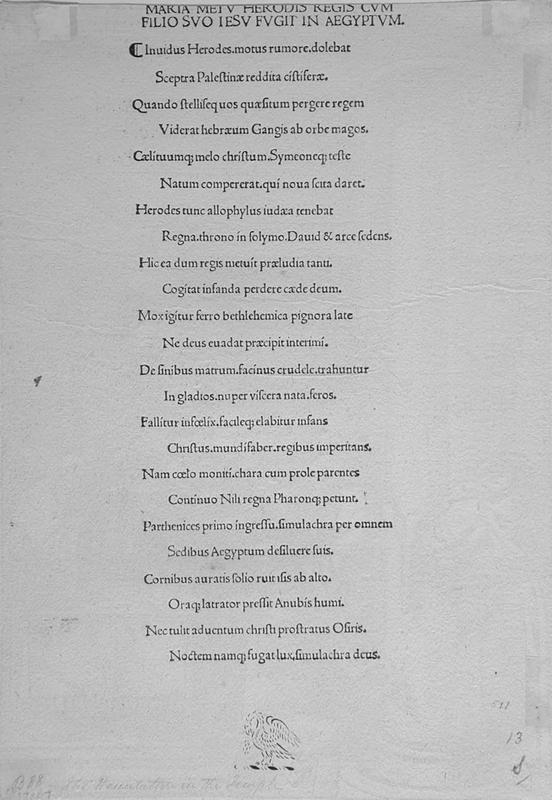 MARIA METV HERODIS REGIS CVM
FILIO SVO IESV FVGIT IN AEGYPTVM.
Inuidus Herodes.motus rumore.dolebat
Sceptra Paleſtinæ reddita ciſtiferæ.
Quando ſtelliſequos quæſitum pergere regem
Viderat hebræum Gangis ab orbe magos.
Cælituumqꝫ melo chriſtum.Symeoneqꝫ teſte
Natum compererat.qui noua ſcita daret.
Herodes tunc allophylus iudæa tenebat
Regna.throno in ſolymo.Dauid & arce ſedens.
Hic ea dum regis metuit præludia tanti.
Cogitat infanda perdere cæde deum.
Mox igitur ferro bethlehemica pignora late
Ne deus euadat præcipit interimi.
De ſinibus matrum.facinus crudele.trahuntur
In gladios.nuper viſcera nata.feros.
Fallitur infœlix.facileqꝫ elabitur infans
Chriſtus.mundifaber.regibus imperitans.
Nam cœlo moniti.chara cum prole parentes
Continuo Nili regna Pharonqꝫ petunt.
Parthenices primo ingreſſu.ſimulachra per omnem
Sedibus Aegyptum deſiluere ſuis.
Cornibus auratis ſolio ruit iſis ab alto.
Oraqꝫ latrator preſſit Anubis humi.
Nec tulit aduentum chriſti proſtratus Oſiris.
Noctem namqꝫ fugat lux.ſimulachra deus.
511
13
B 88
in the Temple